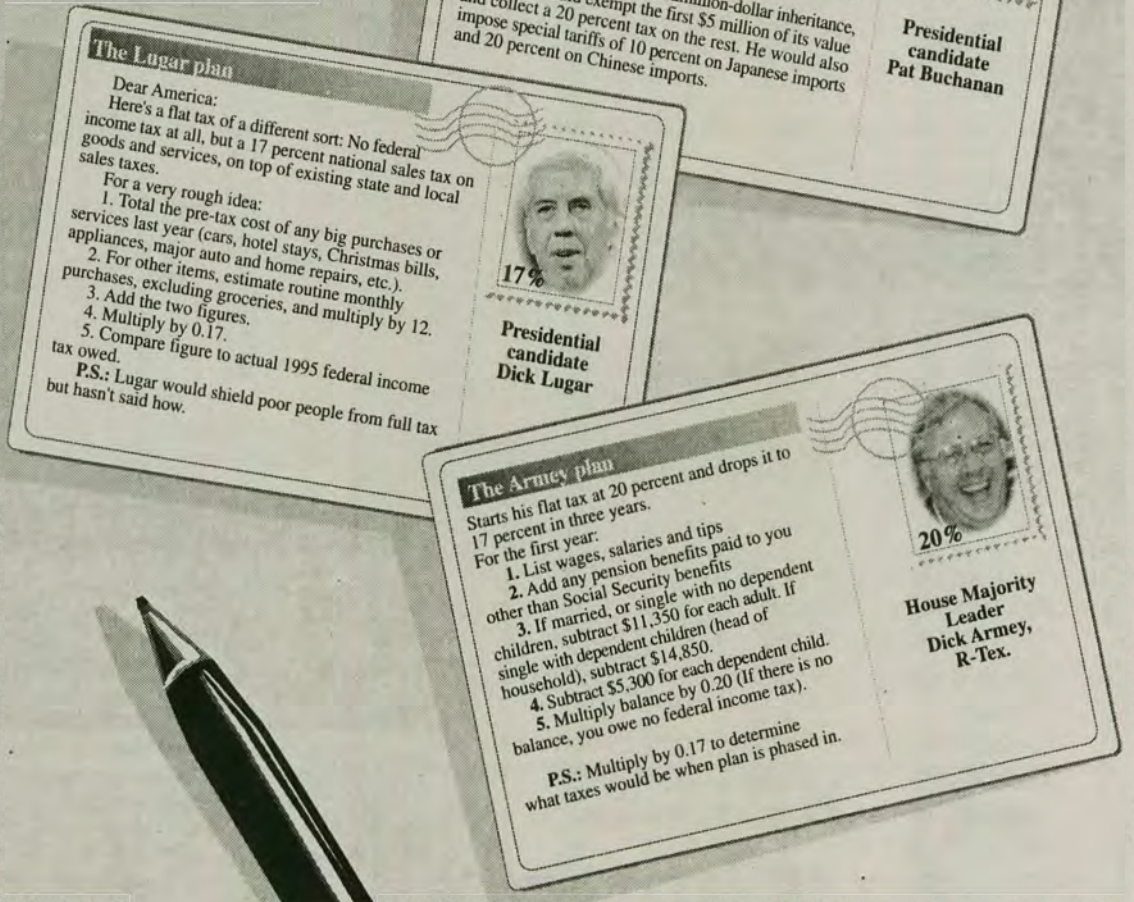 million-dollar inheritance,
exempt the first $5 million of its value
and collect a 20 percent tax on the rest. He would also
impose special tariffs of 10 percent on Japanese imports
and 20 percent on Chinese imports.
Presidential
candidate
Pat Buchanan
The Lugar plan
Dear America:
Here's a flat tax of a different sort: No federal
income tax at all, but a 17 percent national sales tax on
goods and services, on top of existing state and local
sales taxes.
For a very rough idea:
1. Total the pre-tax cost of any big purchases or
services last year (cars, hotel stays, Christmas bills,
appliances, major auto and home repairs, etc.).
2. For other items, estimate routine monthly
purchases, excluding groceries, and multiply by 12.
3. Add the two figures.
4. Multiply by 0.17.
5. Compare figure to actual 1995 federal income
tax owed.
P.S.: Lugar would shield poor people from full tax
but hasn't said how.
17%
Presidential
candidate
Dick Lugar
The Armey plan
Starts his flat tax at 20 percent and drops it to
17 percent in three years.
For the first year:
1. List wages, salaries and tips
2. Add any pension benefits paid to you
other than Social Security benefits
3. If married, or single with no dependent
children, subtract $11,350 for each adult. If
single with dependent children (head of
household), subtract $14,850.
4. Subtract $5,300 for each dependent child.
5. Multiply balance by 0.20 (If there is no
balance, you owe no federal income tax).
P.S.: Multiply by 0.17 to determine
what taxes would be when plan is phased in.
20%
House Majority
Leader
Dick Armey,
R-Tex.